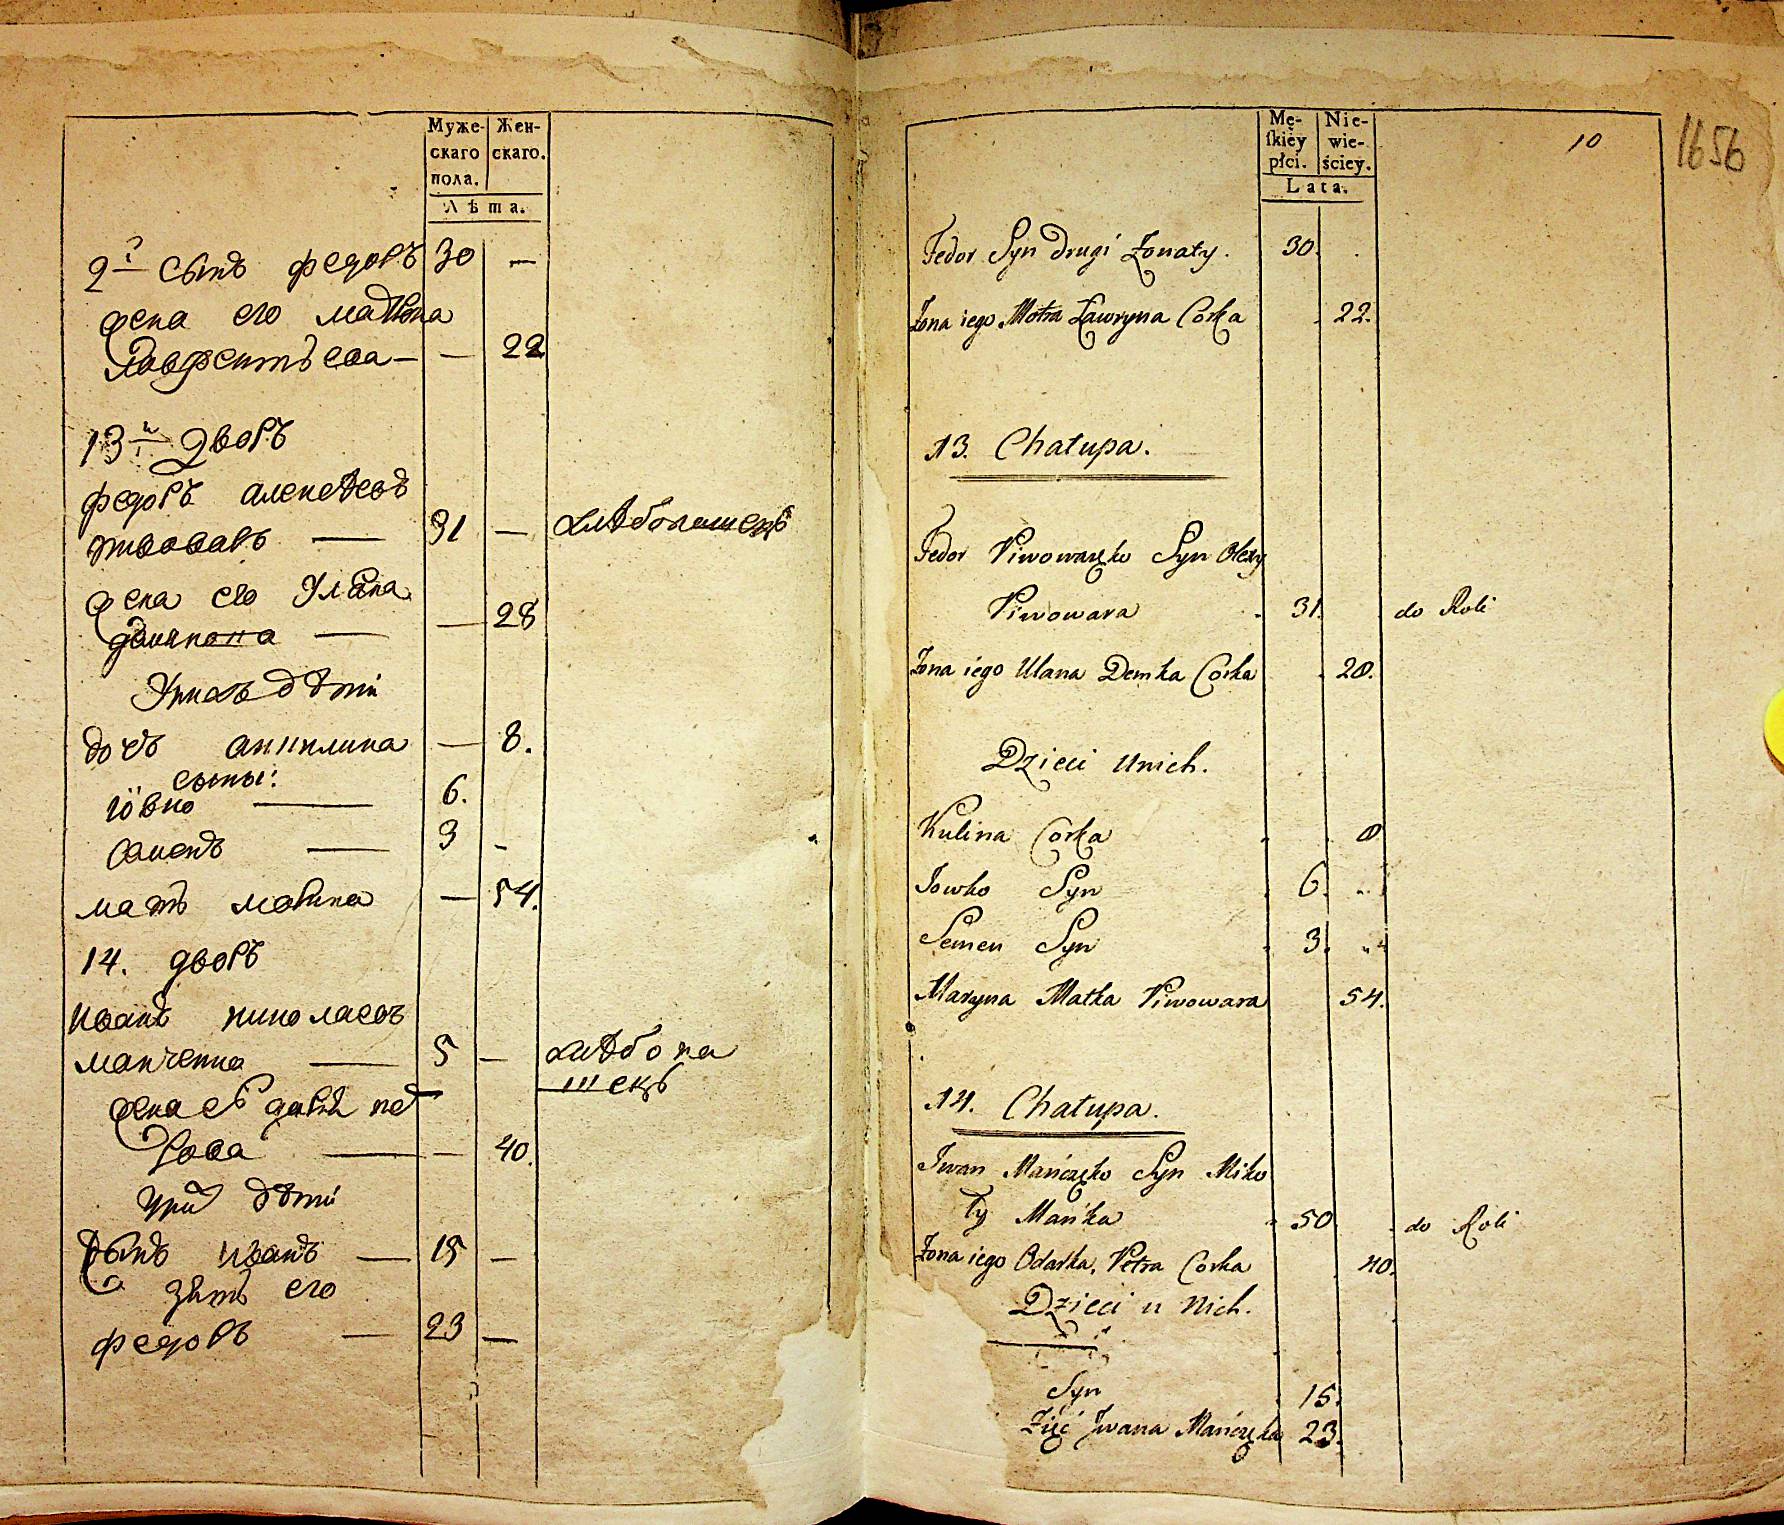 Муже- Жен-
скаго скаго.
пола.
Лѣта.
2й сынъ федоръ 30 —
жена его матрона
лаврентьева — — 22
13й дворъ
федоръ алексѣевъ
пивоваръ — 31 — хлѣбопашецъ
жена его Уляна
— 28
У нихъ дѣти
дочь акилина — 8.
сыны:
іовко — 6.
саменъ — 3 -
мать марина — 54.
14. дворъ
иванъ николаевъ
манченко — 5 — хлѣбопа
шецъ
жена его дарія пет
рова — — 40.
дѣти
сынъ иванъ — 15 —
зять его
федоръ — 23 —
Mę- Nie-
skiey wie-
płci. ściey.
Lata.
10
1656
Fedor Syn drugi Żonaty. 30.
Żona iego Motra Ławryna Corka 22.
13. Chałupa.
Fedor Piwowarzko Syn Olexy
Piwowara 31. do Roli
Żona iego Ulana Demka Corka 28.
Dzieci Unich.
Kulina Corka 8
Jowko Syn 6.
Semen Syn 3.
Maryna Matka Piwowara 54.
14. Chałupa.
Iwan Mańczęko Syn Miko
ły Mańka 50 do Roli
Żona iego Odarka, Petra Corka 40.
Dzieci u Nich.
Syn 15.
Zięć Iwana Mańczęka 23.